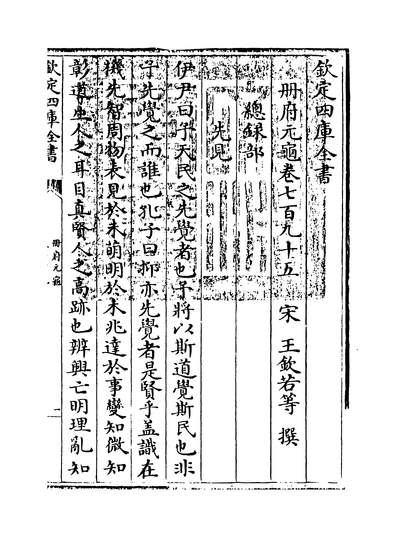 欽定四庫全書
冊府元龜卷七百九十五
宋 王欽若等 撰
總錄部
先見
伊尹曰予天民之先覺者也予將以斯道覺斯民也非
予先覺之而誰也孔子曰抑亦先覺者是賢乎蓋識在
機先智周物表見於未萌明於未兆達於事變知微知
彰導生人之耳目真賢人之高跡也辨興亡明理亂知
欽定四庫全書
冊府元龜
一